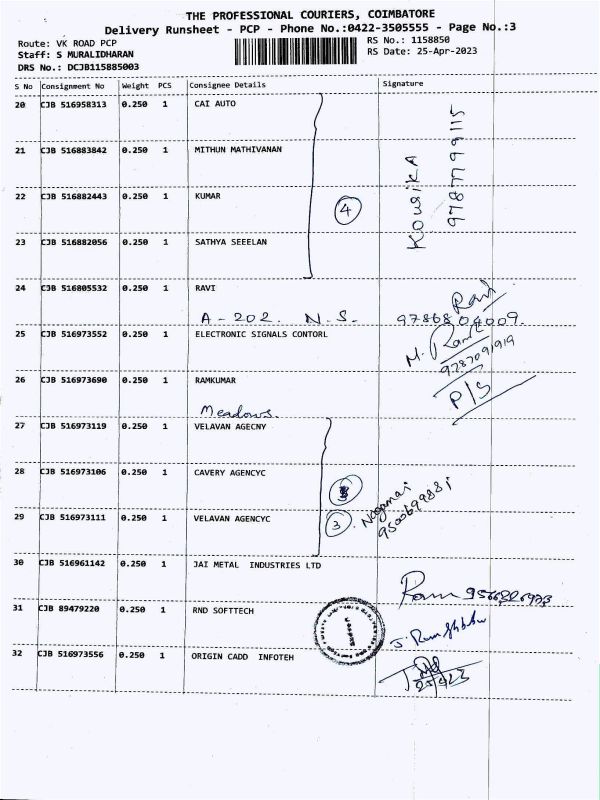 THE PROFESSIONAL COURIERS, COIMBATORE
Delivery Runsheet - PCP - Phone No.:0422-3505555 - Page No.:3
Route: VK ROAD PCP
RS No.: 1158850
Staff: S MURALIDHARAN
RS Date: 25-Apr-2023
DRS No.: DCJB115885003
S No Consignment No Weight PCS Consignee Details Signature
20 CJB 516958313 0.250 1 CAI AUTO
21 CJB 516883842 0.250 1 MITHUN MATHIVANAN
22 CJB 516882443 0.250 1 KUMAR
23 CJB 516882056 0.250 1 SATHYA SEEELAN
4
KOUSIKA
9787799115
24 CJB 516805532 0.250 1 RAVI
Ravi
A-202. N.S. 9786804009.
25 CJB 516973552 0.250 1 ELECTRONIC SIGNALS CONTORL
9787091919
26 CJB 516973690 0.250 1 RAMKUMAR
P/S
Meadows.
27 CJB 516973119 0.250 1 VELAVAN AGECNY
28 CJB 516973106 0.250 1 CAVERY AGENCYC
29 CJB 516973111 0.250 1 VELAVAN AGENCYC
3
Nagamai
9500699881
30 CJB 516961142 0.250 1 JAI METAL INDUSTRIES LTD
Ram
31 CJB 89479220 0.250 1 RND SOFTTECH
32 CJB 516973556 0.250 1 ORIGIN CADD INFOTEH
25/4/23